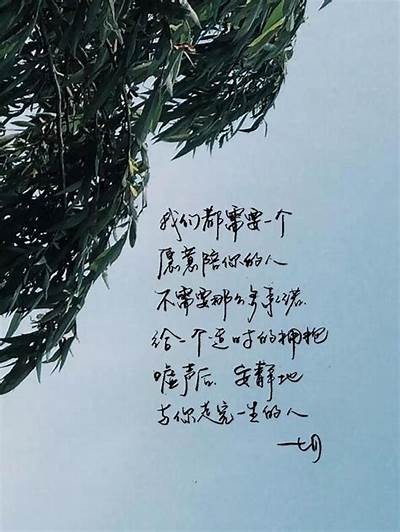 我们都需要一个
愿意陪你的人
不需要那么多承诺
给一个适时的拥抱
嘘声后 安静地
与你走完一生的人
一七月